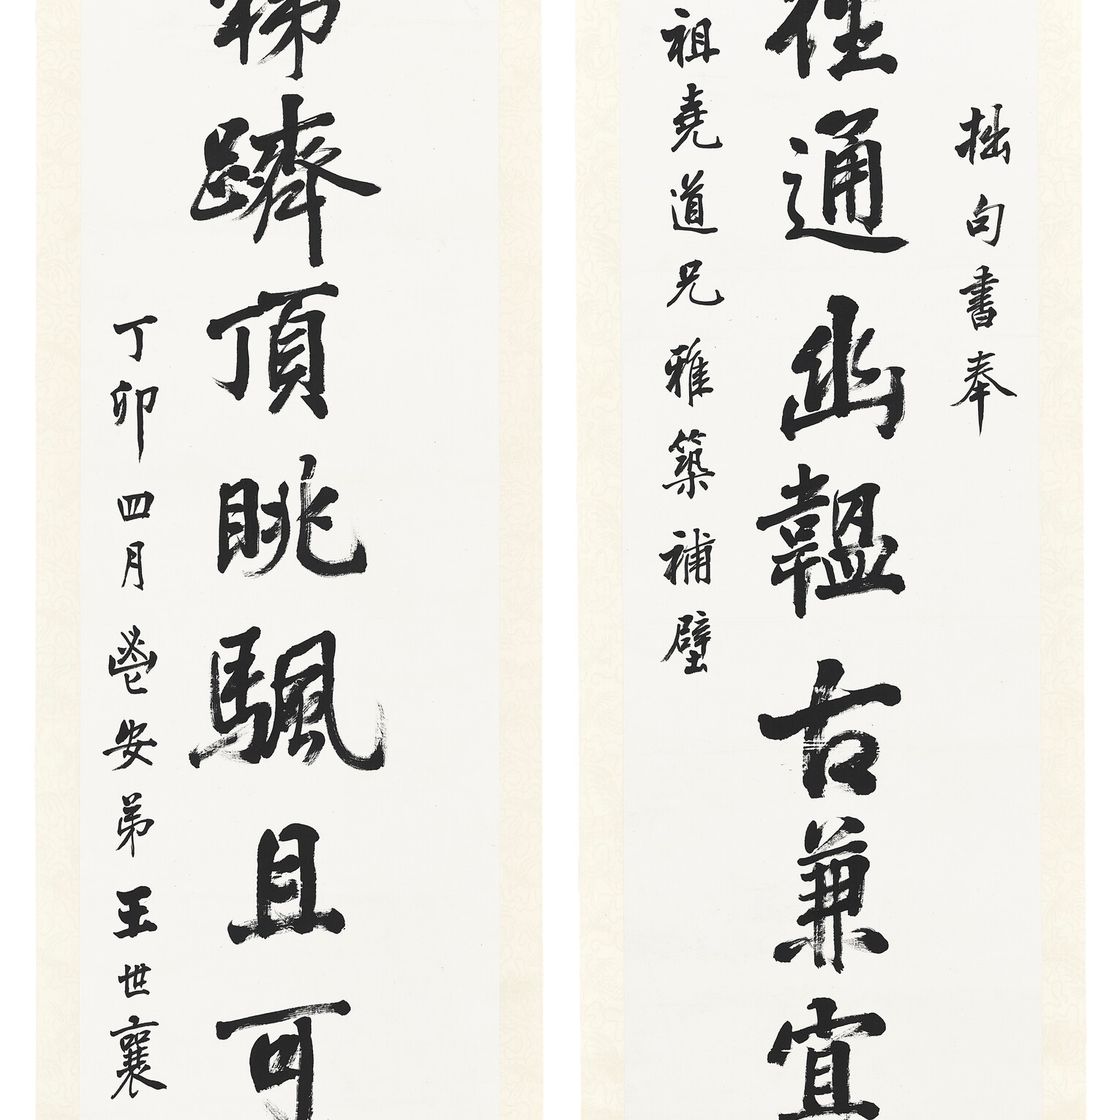 拙句書奉
徑通幽韞古兼宜
祖堯道兄雅築補壁
梯躋頂眺颿且可
丁卯四月鬯安弟王世襄